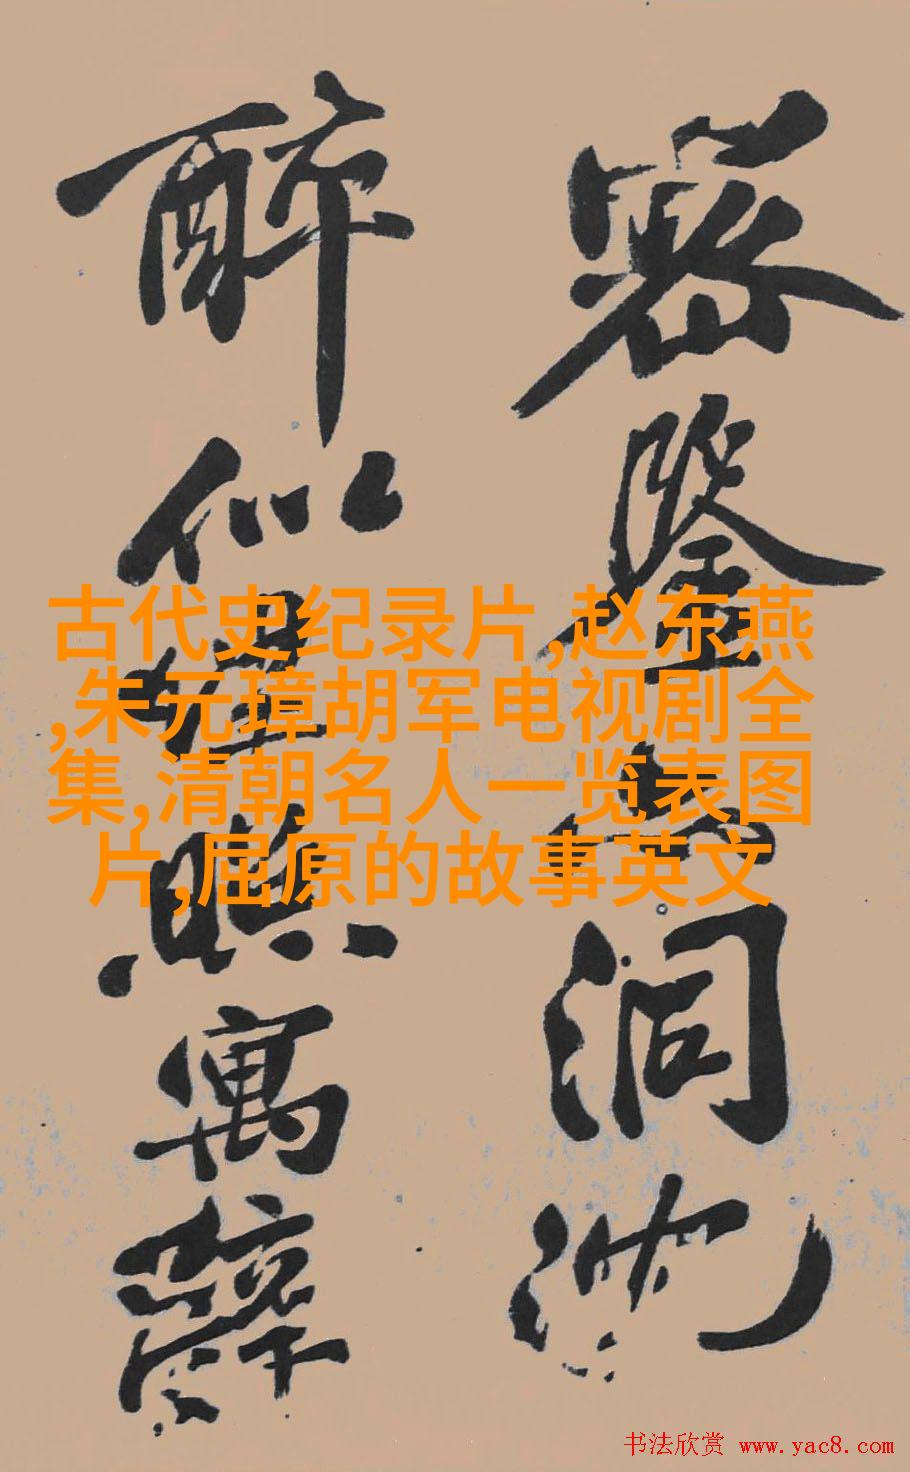 密鑒亦洞沉
醉似埋照寓辭
古代史纪录片,赵东燕
,朱元璋胡军电视剧全
集,清朝名人一览表图
片,屈原的故事英文
书法欣赏 www.yac8.com